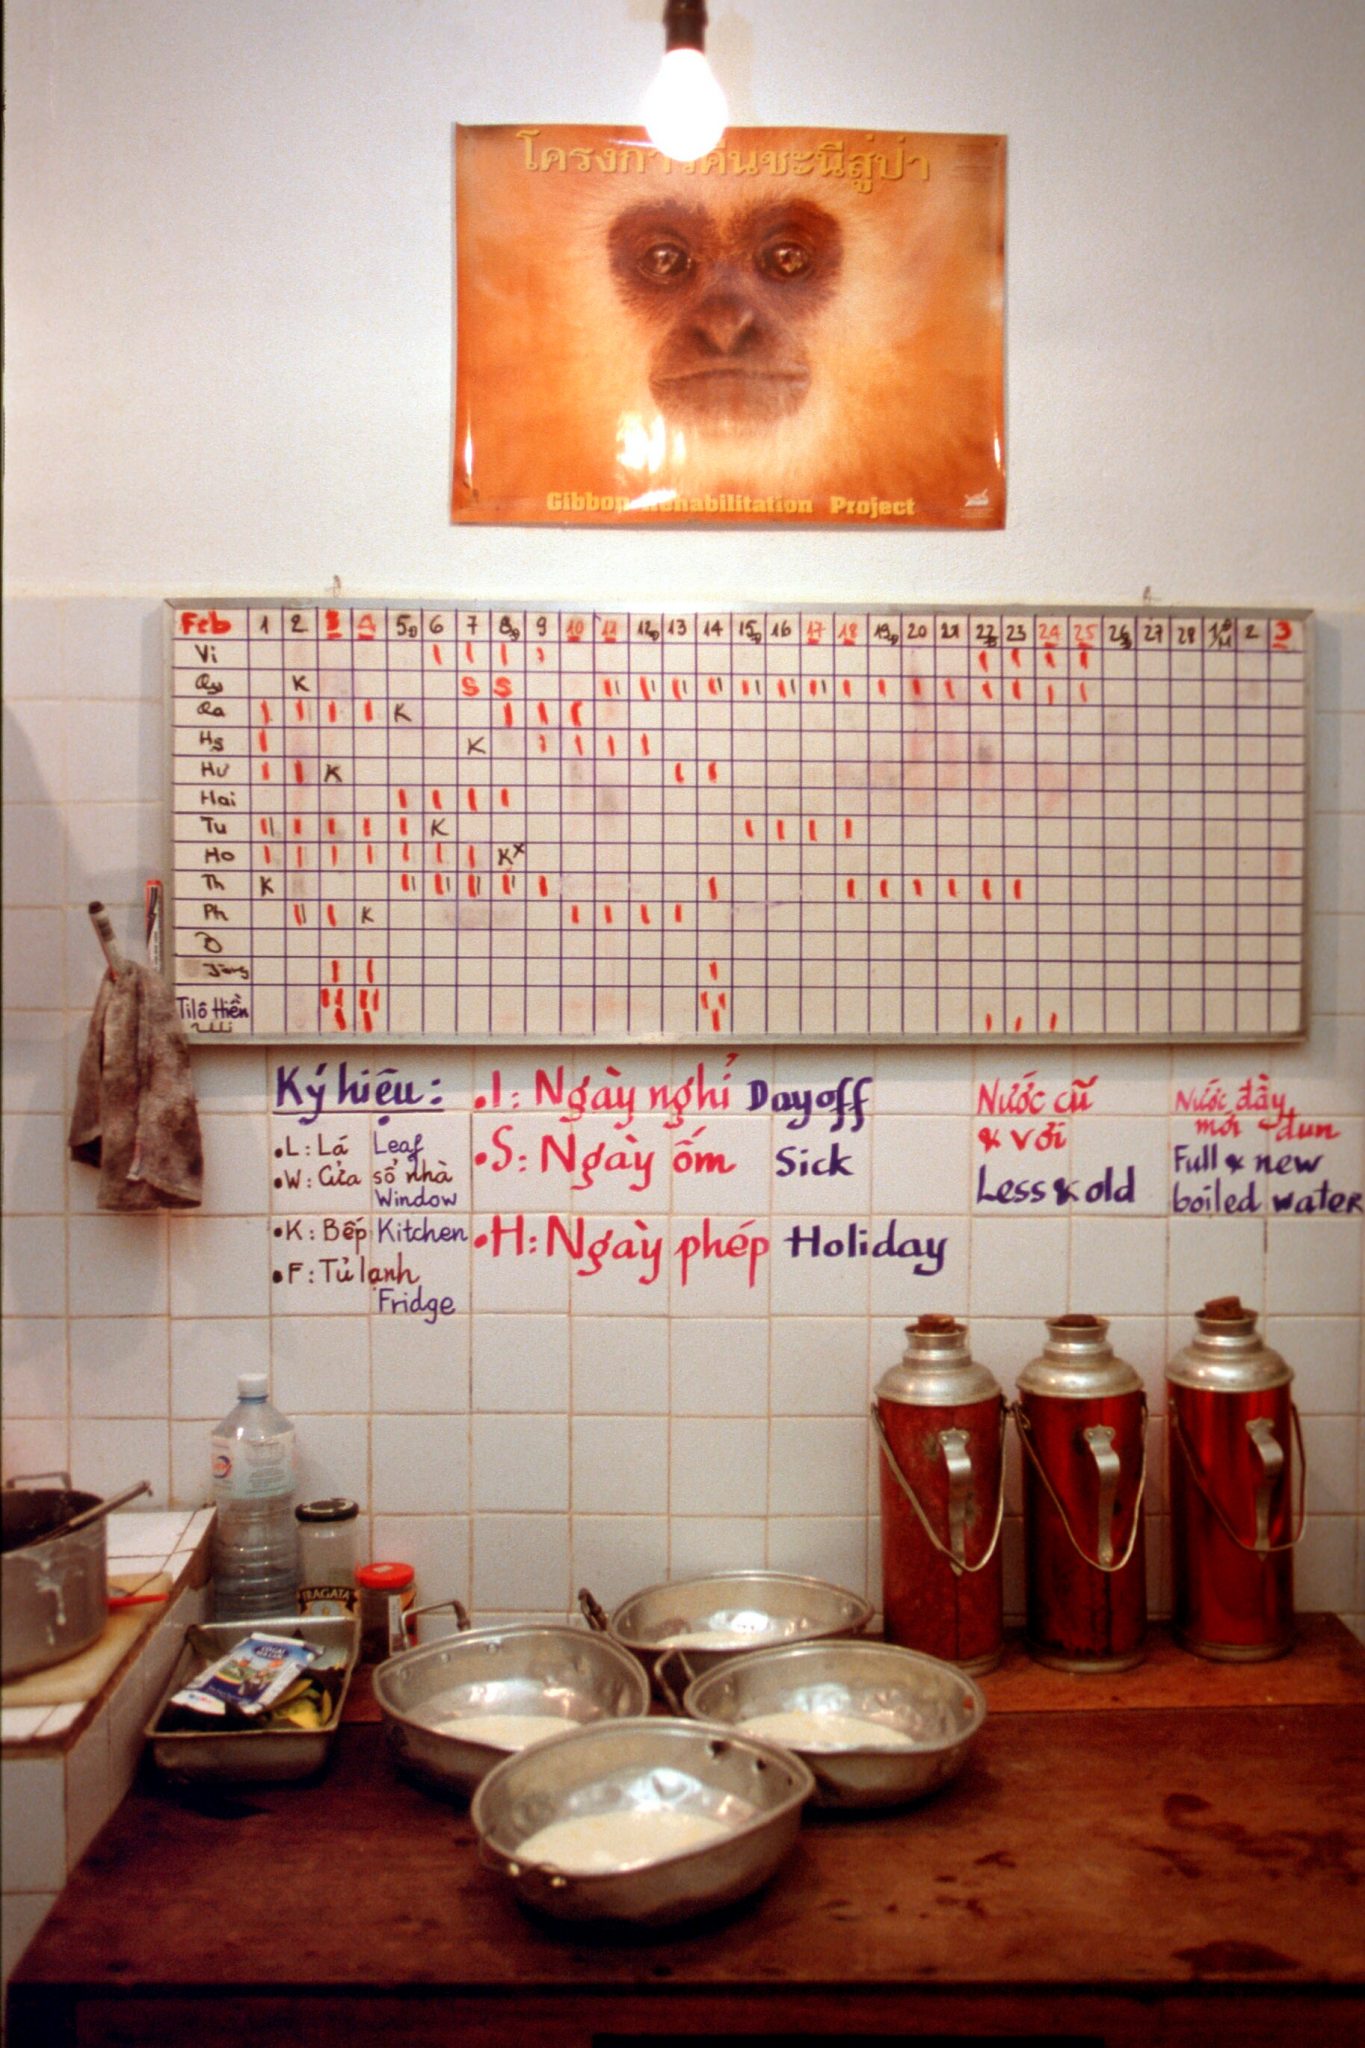 โครงการคืนชะนีสู่ป่า
Gibbon Rehabilitation Project
Feb 1 2 3 4 5 6 7 8 9 10 11 12 13 14 15 16 17 18 19 20 21 22 23 24 25 26 27 28 2 3
Vi I I I I I I I
Qy K S S II II II II II II II I I I I I I I I
Qa I I I I K I I I
Hg I K I I I I
Hư I I K I I
Hai I I I I
Tu II I I I I K I I I I
Ho I I I I I I I K x
Th K II II II II I I I I I I I I
Ph II I K I I I I
Ký hiệu:
• L: Lá Leaf
• W: Cửa sổ nhà
Window
• K: Bếp Kitchen
• F: Tủ lạnh
Fridge
• I: Ngày nghỉ Day off
• S: Ngày ốm Sick
• H: Ngày phép Holiday
Nước cũ
& vơi
Less & old
Nước đầy
mới đun
Full & new
boiled water
FRAGATA